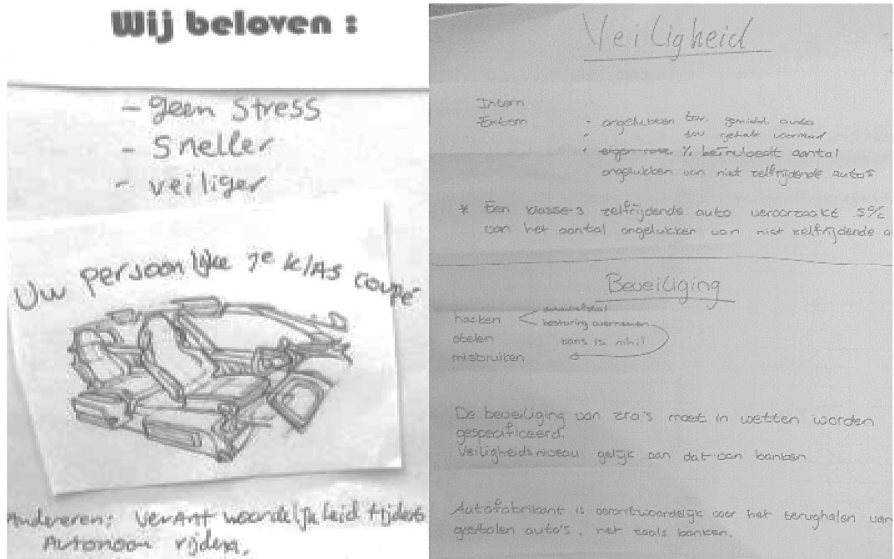 Wij beloven :
- geen stress
- Sneller
- veiliger
Uw persoonlijke 1e klAs coupé
Anderen: verAntwoordelijkheid tijdens
Autonoom rijden.
Veiligheid
Intern
Extern
• ongelukken tov. gemidd. auto
• tov gehele voorraad
• eigen % beïnvloedt aantal
ongelukken van niet zelfrijdende auto's
* Een klasse-3 zelfrijdende auto veroorzaakt 5%
van het aantal ongelukken van niet zelfrijdende a
Beveiliging
hacken
besturing overnemen
stelen
kans is nihil
misbruiken
De beveiliging van zra's moet in wetten worden
gespecificeerd.
Veiligheidsniveau gelijk aan dat van banken
Autofabrikant is verantwoordelijk voor het terughalen van
gestolen auto's, net zoals banken.